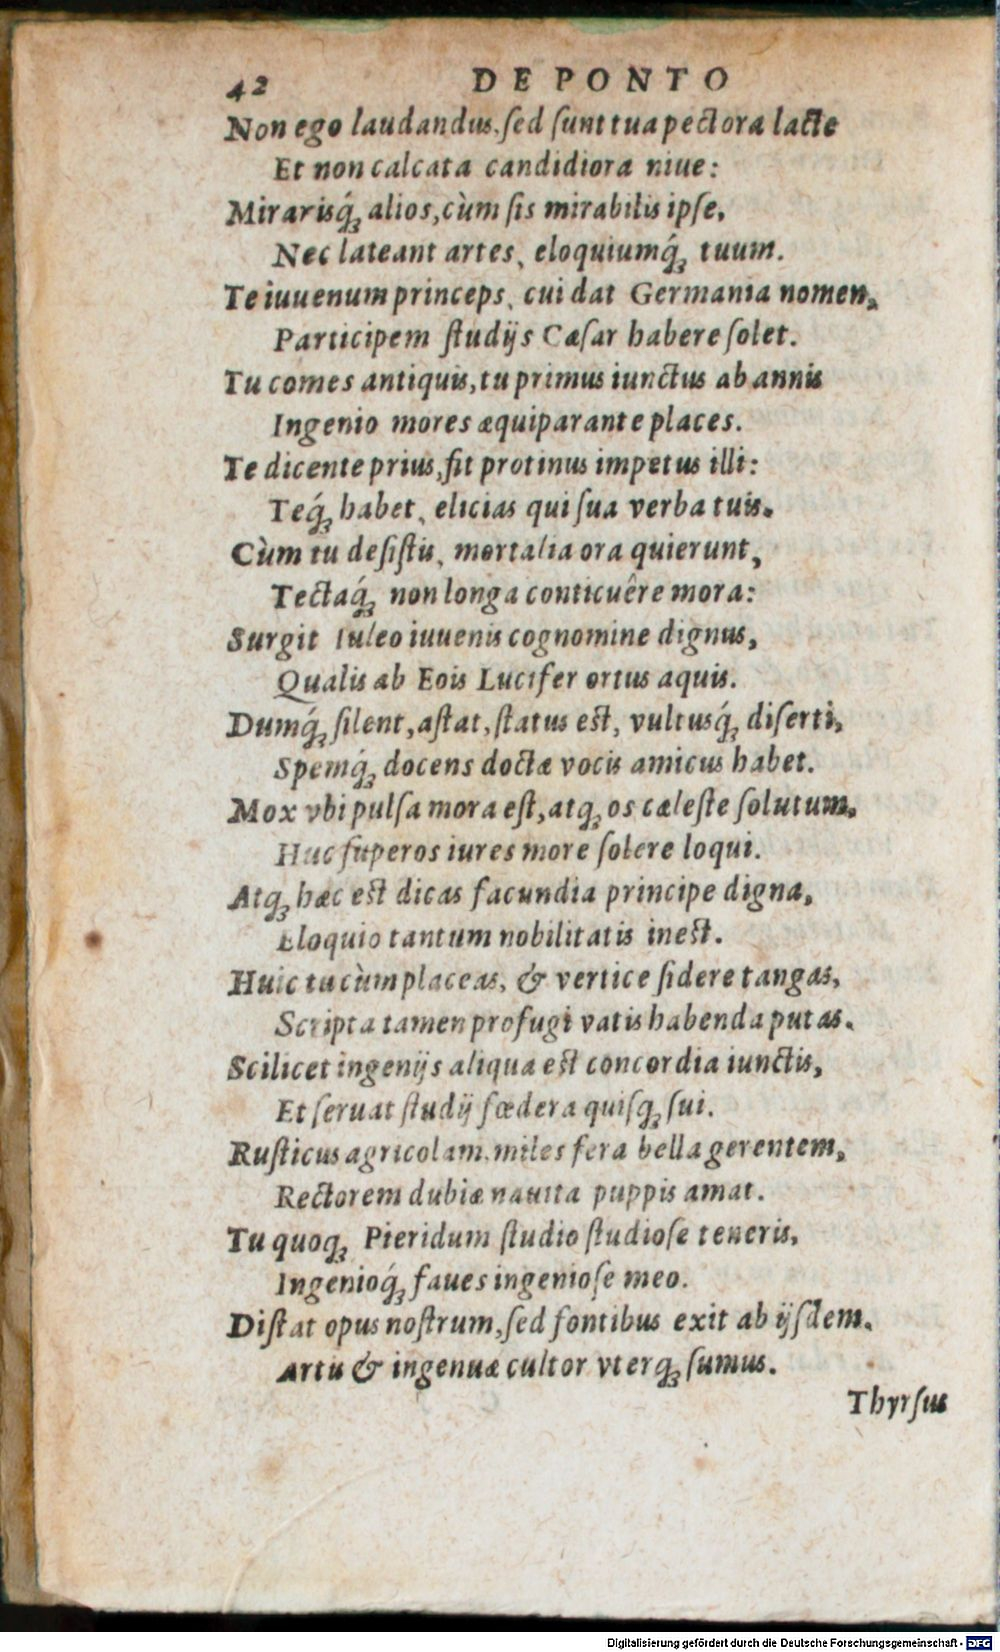 42 DE PONTO
Non ego laudandus, sed sunt tua pectora lacte
Et non calcata candidiora niue:
Mirarisq́ꝫ alios, cùm sis mirabilis ipse,
Nec lateant artes, eloquiumq́ꝫ tuum.
Te iuuenum princeps, cui dat Germania nomen,
Participem studijs Cæsar habere solet.
Tu comes antiquis, tu primus iunctus ab annis
Ingenio mores æquiparante places.
Te dicente prius, fit protinus impetus illi:
Teq́ꝫ habet, elicias qui sua verba tuis.
Cùm tu desistis, mortalia ora quierunt,
Tectaq́ꝫ non longa conticuêre mora:
Surgit Iuleo iuuenis cognomine dignus,
Qualis ab Eois Lucifer ortus aquis.
Dumq́ꝫ silent, astat, status est, vultusq́ꝫ diserti,
Spemq́ꝫ docens doctæ vocis amicus habet.
Mox vbi pulsa mora est, atqꝫ os cæleste solutum,
Huc superos iures more solere loqui.
Atqꝫ hæc est dicas facundia principe digna,
Eloquio tantum nobilitatis inest.
Huic tu cùm placeas, & vertice sidere tangas,
Scripta tamen profugi vatis habenda putas.
Scilicet ingenijs aliqua est concordia iunctis,
Et seruat studij fœdera quisqꝫ sui.
Rusticus agricolam, miles fera bella gerentem,
Rectorem dubiæ nauita puppis amat.
Tu quoqꝫ Pieridum studio studiose teneris,
Ingenioq́ꝫ faues ingeniose meo.
Distat opus nostrum, sed fontibus exit ab ijsdem.
Artis & ingenuæ cultor vterqꝫ sumus.
Thyrsus
Digitalisierung gefördert durch die Deutsche Forschungsgemeinschaft - DFG